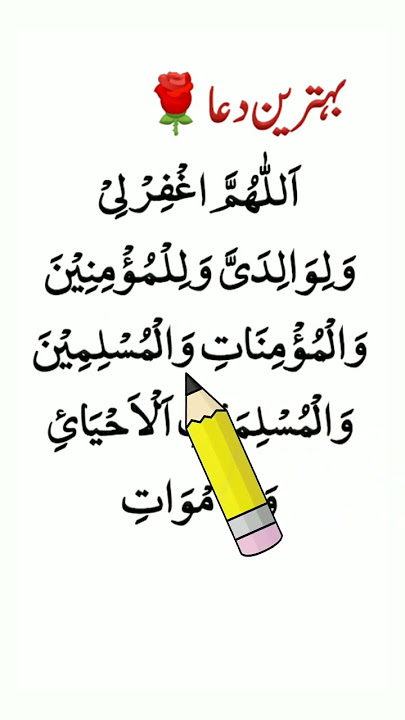 بہترین دعا
اَللّٰهُمَّ اغْفِرْ لِیْ
وَلِوَالِدَیَّ وَلِلْمُؤْمِنِیْنَ
وَالْمُؤْمِنَاتِ وَالْمُسْلِمِیْنَ
اَلْاَحْیَائِ